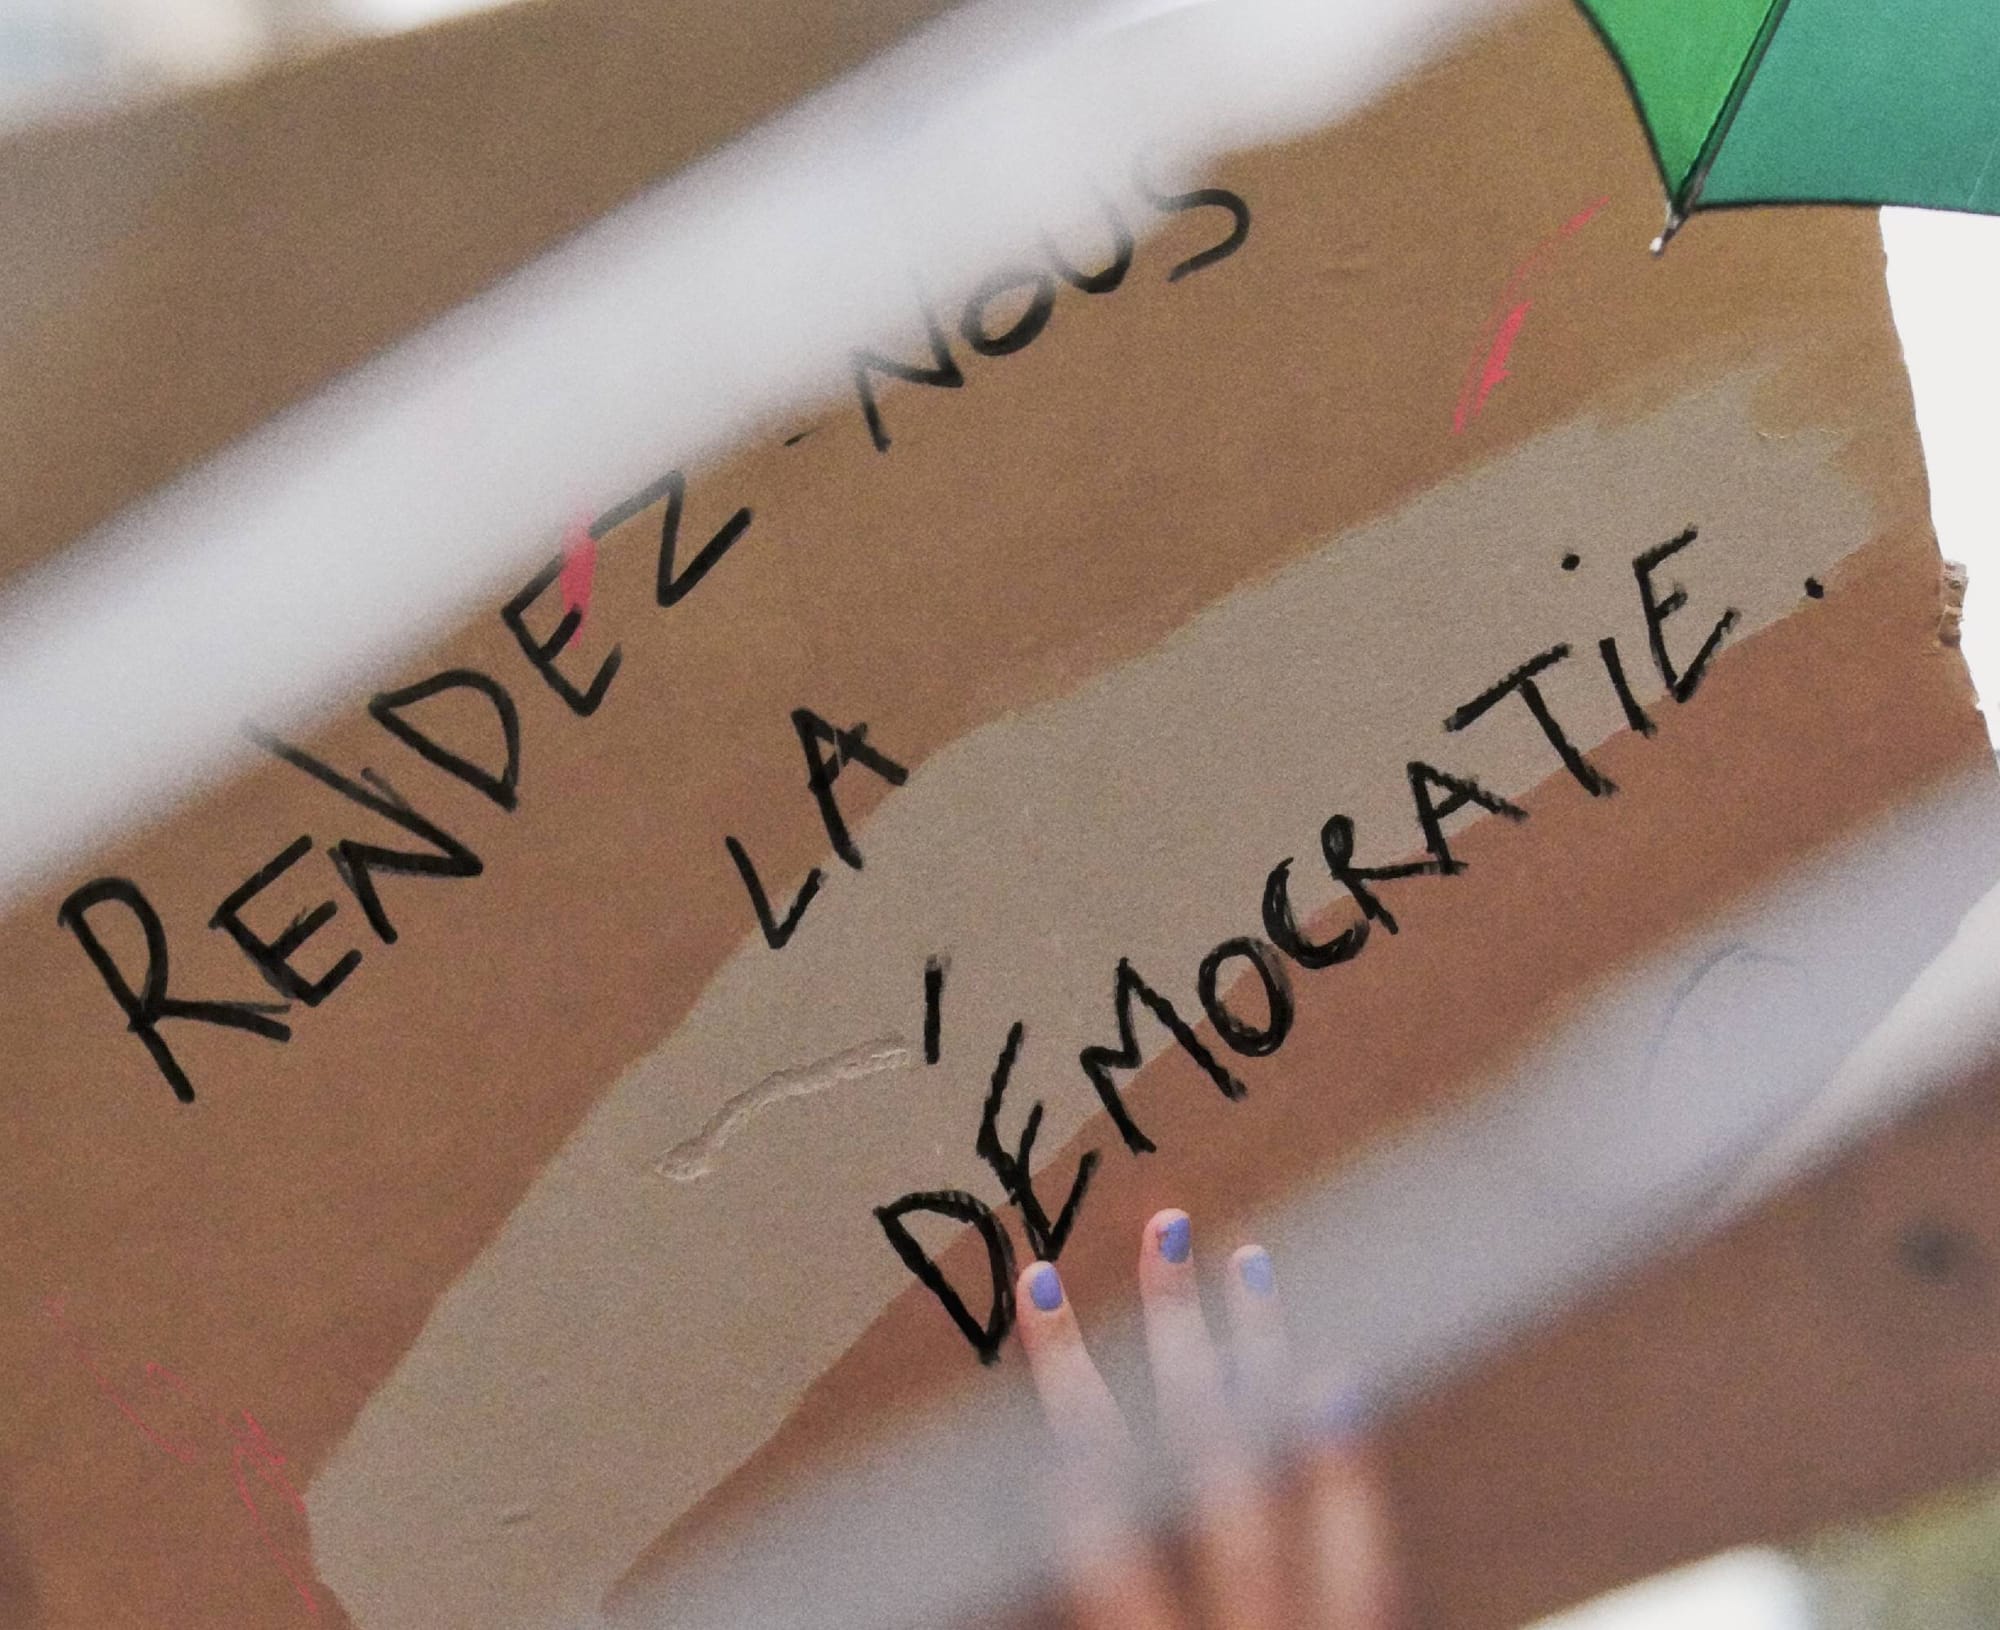 RENDEZ-NOUS
LA
DÉMOCRATIE.